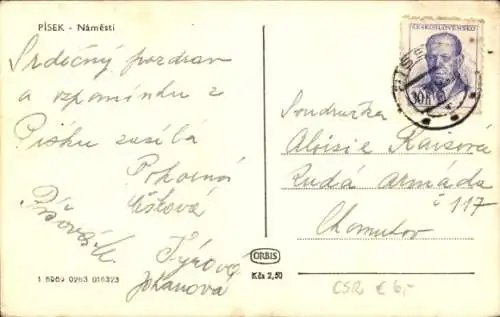 PÍSEK - Náměstí
Srdečný pozdrav
a vzpomínku z
Písku zasílá
Pokorná
Týrová
Johanová
1 5969 0263 016323
ORBIS
Kčs 2,50
ČESKOSLOVENSKO
30h
Soudružka
Aloisie Kaisová
Rudá armáda
č 117
Chomutov
ČSR € 6,-